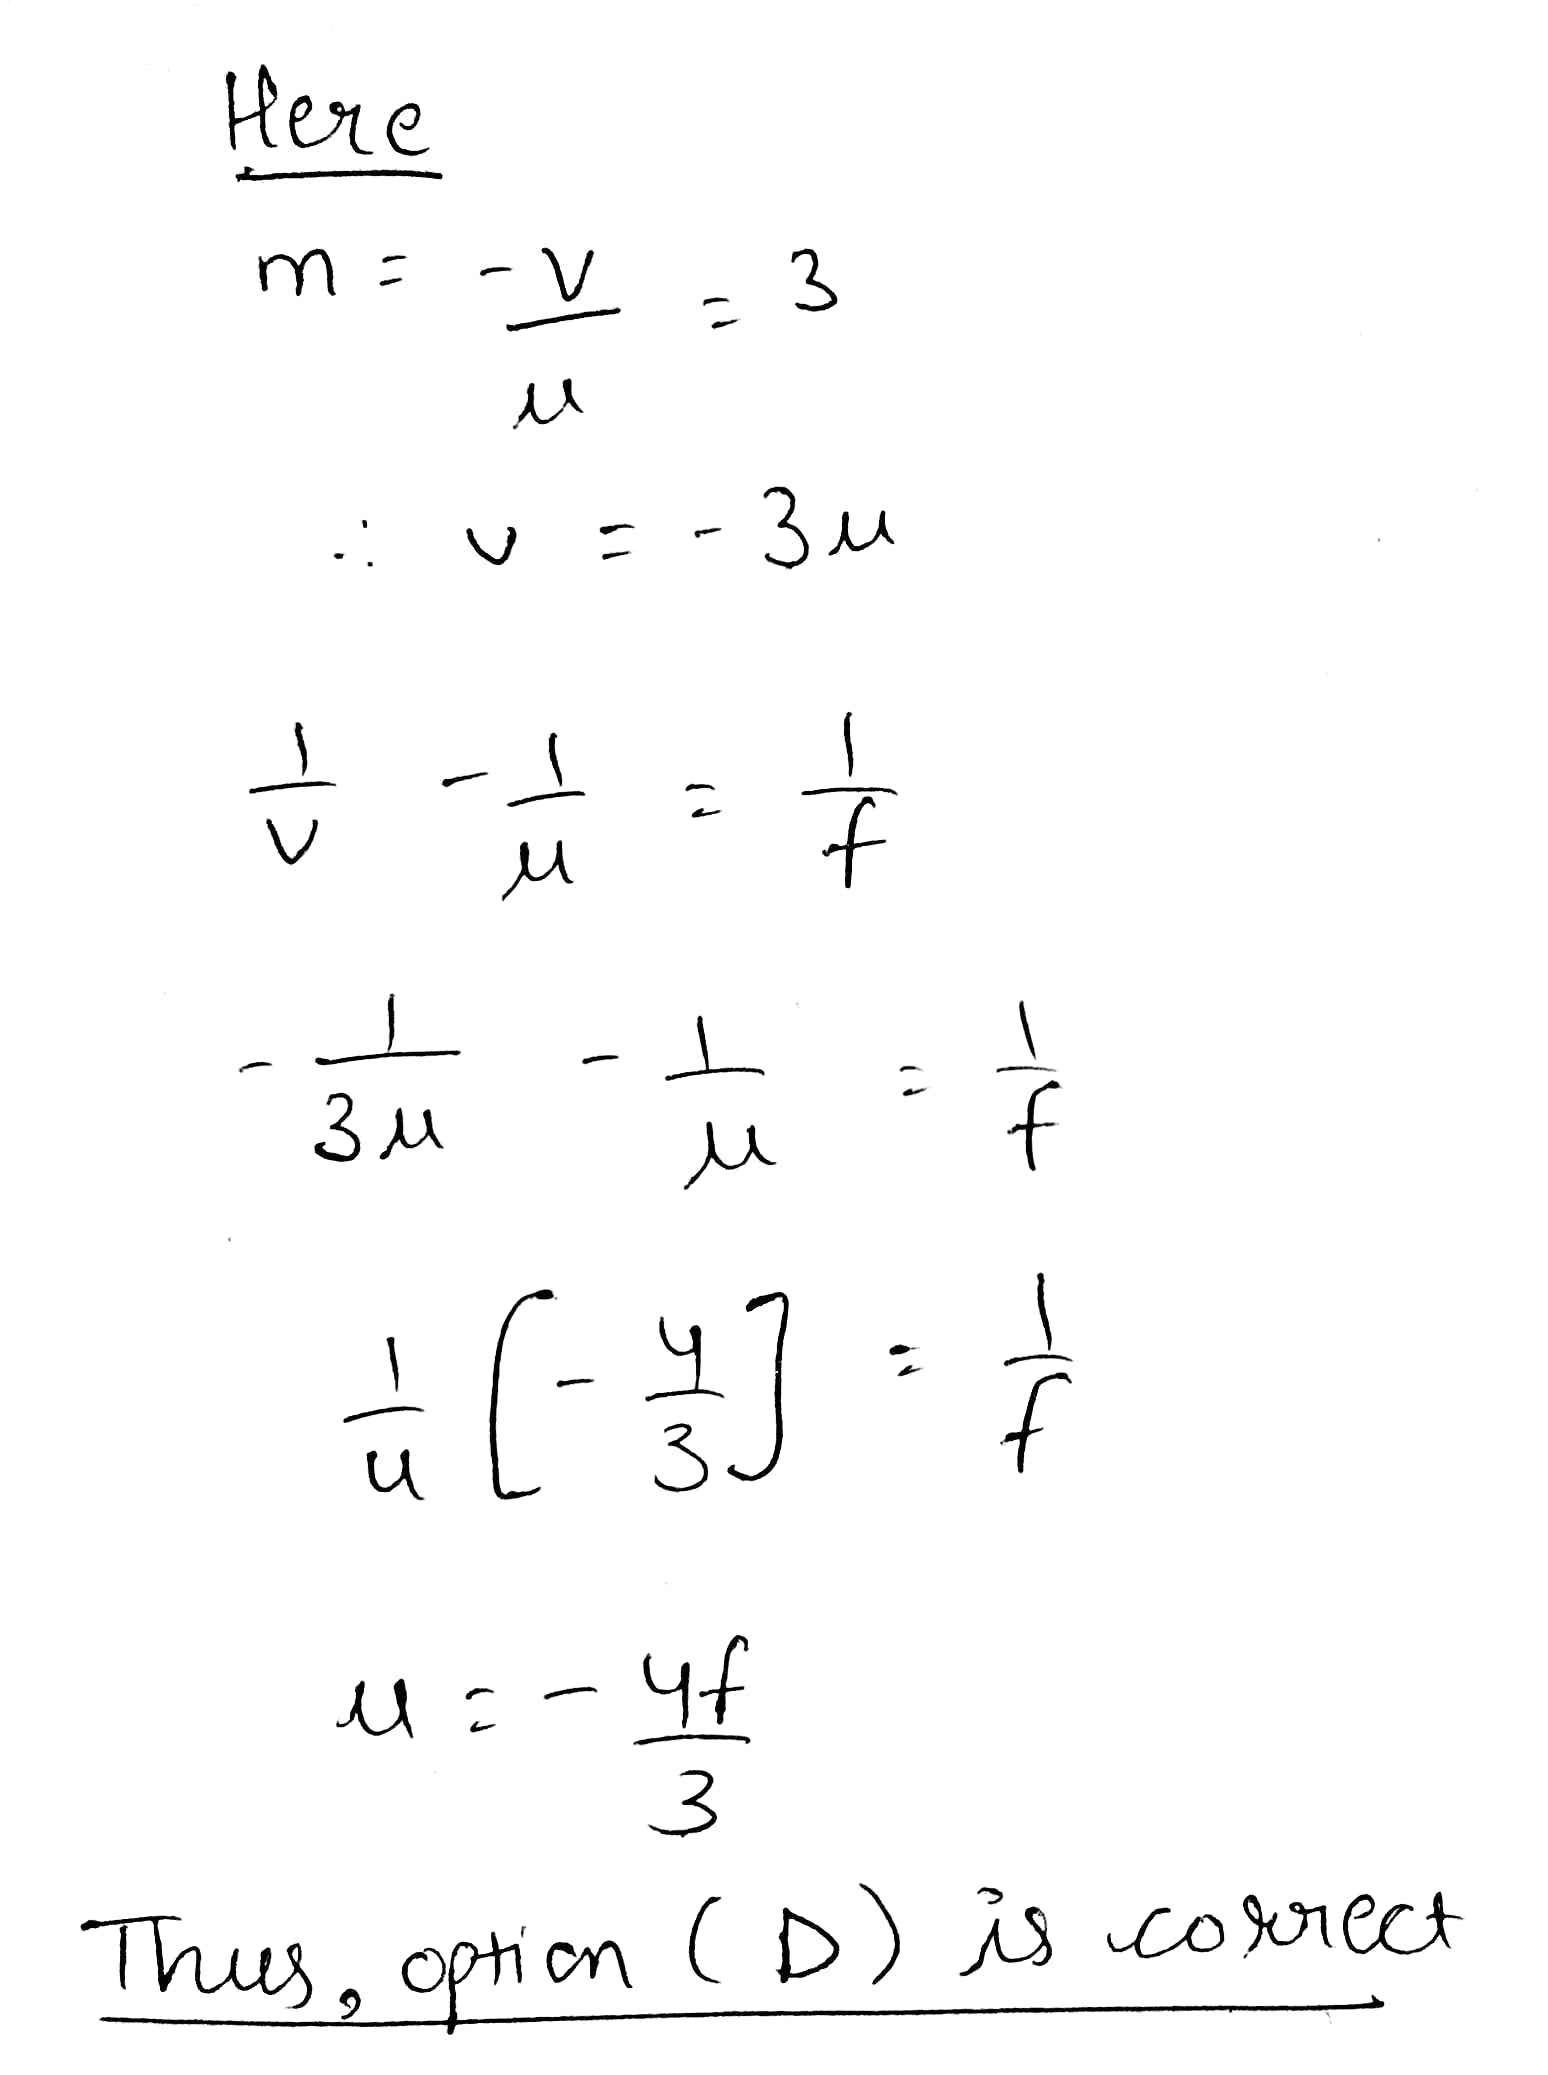 Here
m = -v/u = 3
∴ v = -3u
1/v - 1/u = 1/f
- 1/3u - 1/u = 1/f
1/u [- 4/3] = 1/f
u = - 4f/3
Thus, option (D) is correct